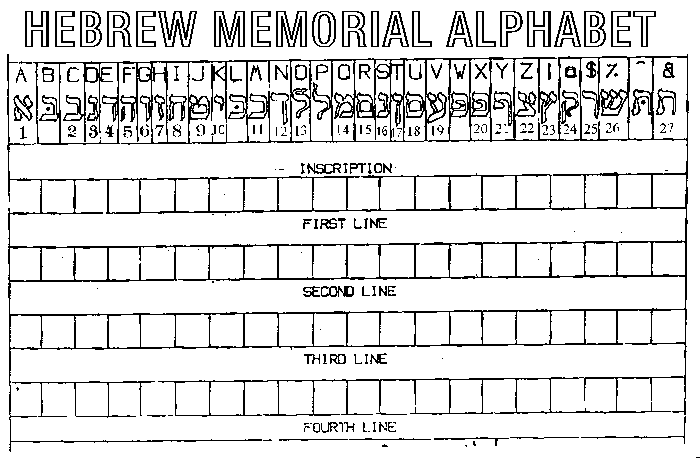 HEBREW MEMORIAL ALPHABET
A B C D E F G H I J K L M N O P Q R S T U V W X Y Z $ % &
א בּ ב ג ד ה ו ז ח ט י כּ כ ך ל ל מ ם נ ן ס ע פּ פ ף צ ץ ק ר ש תּ ת
1 2 3 4 5 6 7 8 9 10 11 12 13 14 15 16 17 18 19 20 21 22 23 24 25 26 27
INSCRIPTION
FIRST LINE
SECOND LINE
THIRD LINE
FOURTH LINE